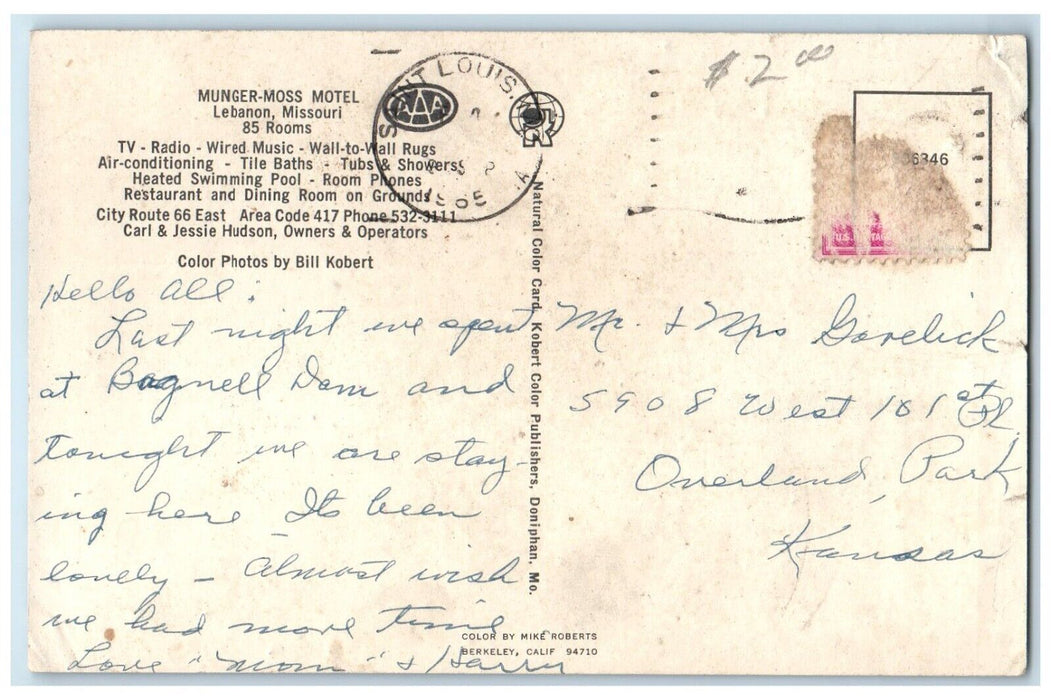 $2.00
SAINT LOUIS.
AAA
1965
36346
MUNGER-MOSS MOTEL
Lebanon, Missouri
85 Rooms
TV - Radio - Wired Music - Wall-to-Wall Rugs
Air-conditioning - Tile Baths - Tubs & Showers
Heated Swimming Pool - Room Phones
Restaurant and Dining Room on Grounds
City Route 66 East Area Code 417 Phone 532-3111
Carl & Jessie Hudson, Owners & Operators
Color Photos by Bill Kobert
Hello All:
Last night we spent
at Bagnell Dam and
tonight we are stay-
ing here Its been
lovely - Almost wish
we had more time
Love "Mom" & Harry
Natural Color Card, Kobert Color Publishers, Doniphan, Mo.
Mr. & Mrs Gorelick
5908 West 101st Pl.
Overland, Park
Kansas
COLOR BY MIKE ROBERTS
BERKELEY, CALIF 94710